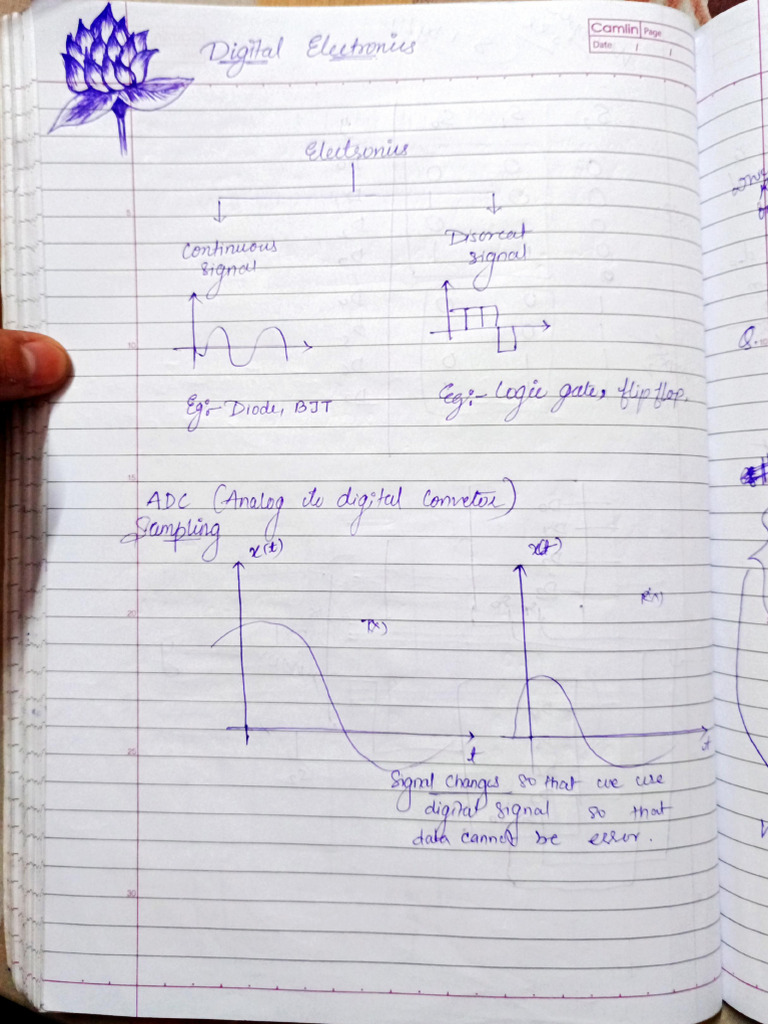 Digital Electronics
Camlin Page
Date / /
Electronics
Continuous signal
Discreat signal
Eg:- Diode, BJT
Eg:- Logic gate, flip flop.
ADC (Analog to digital convetor)
Sampling
x(t)
x(t)
T(x)
R(x)
t
t
Signal changes so that we use
digital signal so that
data cannot be error.
5
10
15
20
25
30
Q.